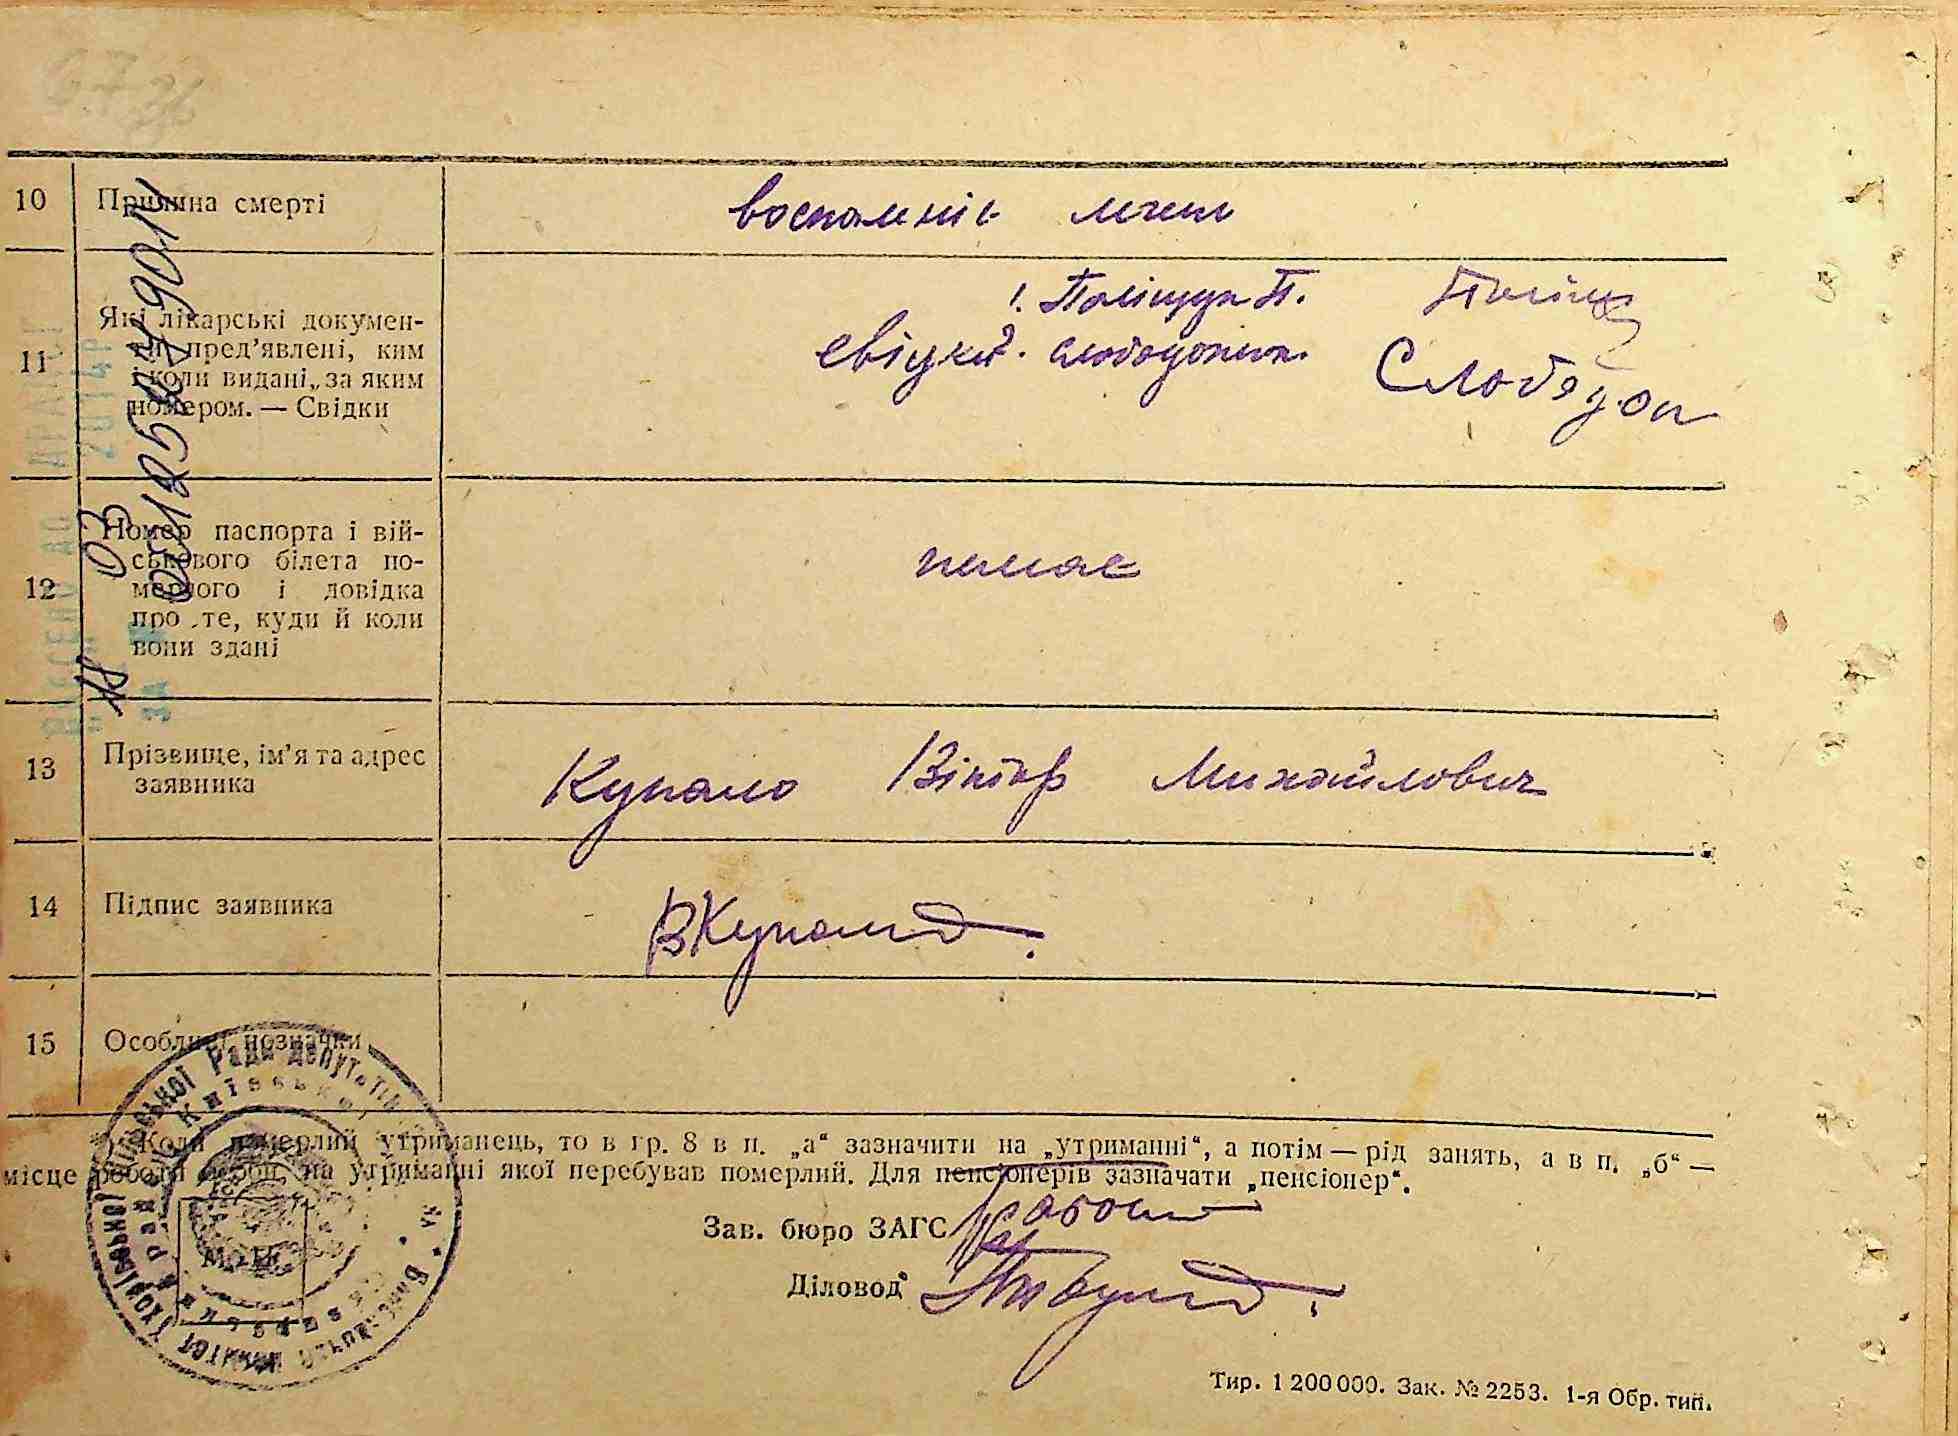 10 Причина смерті
воспаленіє легень
11 Які лікарські докумен-
ти пред'явлені, ким
і коли видані, за яким
номером. — Свідки
Поліщук П.
свідкі.
Слободян
12 Номер паспорта і вій-
ськового білета по-
мерлого і довідка
про те, куди й коли
вони здані
немає
13 Прізвище, ім'я та адрес
заявника
Купало Віктор Михайлович
14 Підпис заявника
ВКупало
15 Особливі позначки
Коли померлий утриманець, то в гр. 8 в п. „а“ зазначити на „утриманні“, а потім — рід занять, а в п. „б“ —
місце роботи особи, на утриманні якої перебував померлий. Для пенсіонерів зазначати „пенсіонер“.
Зав. бюро ЗАГС
Діловод
Тир. 1 200 000. Зак. № 2253. 1-я Обр. тип.